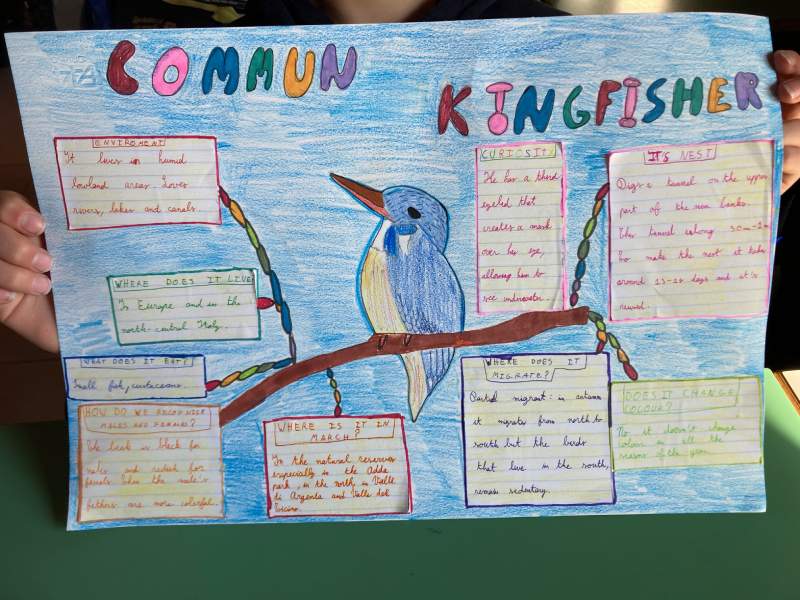 COMMUN
KINGFISHER
ENVIROMENT
It lives in humid
lowland areas. Loves
rivers, lakes and canals.
WHERE DOES IT LIVE
In Europe and in the
north-central Italy.
WHAT DOES IT EAT?
Small fish, crustaceans.
HOW DO WE RECOGNISE
MALES AND FEMALES?
The beak is black for
males and redish for
females. Then the male's
fethers are more colorful.
WHERE IS IT IN
MARCH?
In the natural reserves
especially in the Adda
park, in the north, in Valle
di Argenta and Valle del
Ticino.
CURIOSITY
He has a third
eyelid that
creates a mask
over his eye,
allowing him to
see underwater.
WHERE DOES IT
MIGRATE?
Partial migrant: in autumn
it migrates from north to
south but the birds
that live in the south,
remain sedentary.
IT'S NEST
Digs a tunnel on the upper
part of the river banks.
This tunnel is long
To make the nest it takes
around days and it is
reused.
DOES IT CHANGE
COLOUR?
No, it doesn't change
colour in all the
season of the year.